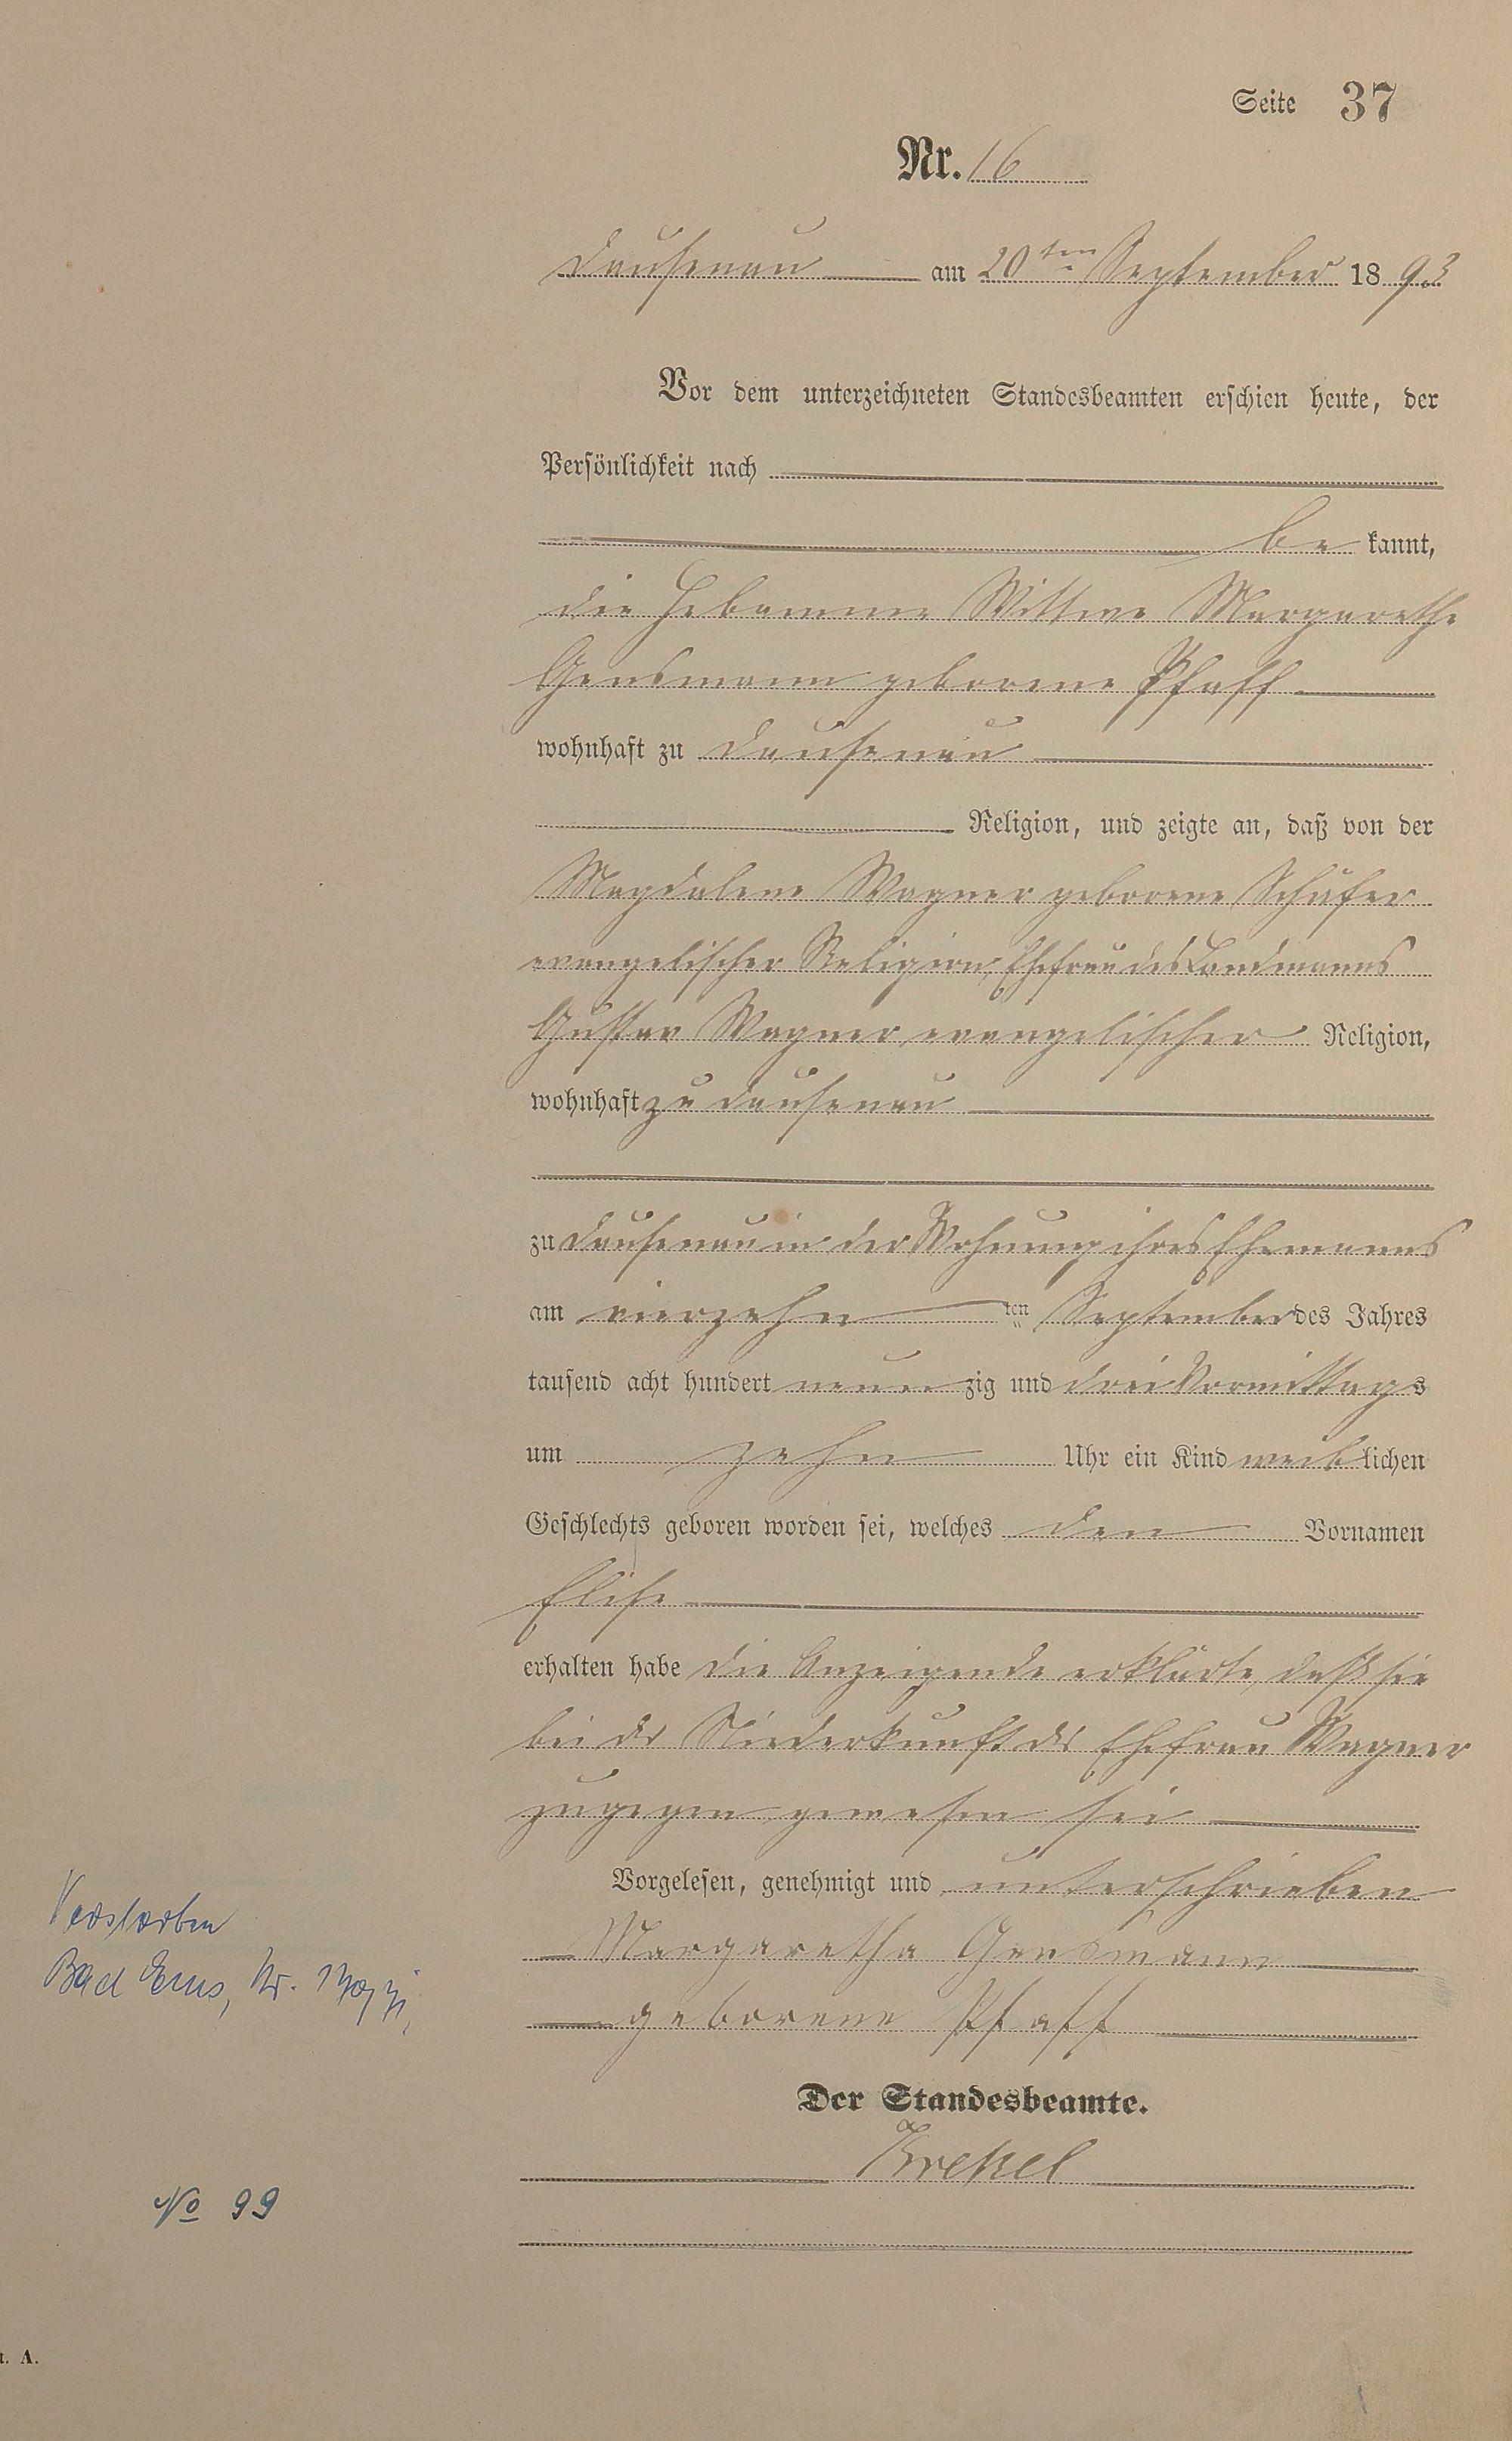 Seite 37
Nr. 16
Dausenau am 20ten September 1893
Vor dem unterzeichneten Standesbeamten erschien heute, der
Persönlichkeit nach
be kannt,
die Hebamme Wittwe Margarethe
Gensmann geborene Pfaff
wohnhaft zu Dausenau
Religion, und zeigte an, daß von der
Magdalene Wagner geborene Schäfer
evangelischer Religion, Ehefrau des Landmanns
Gustav Wagner, evangelischer Religion,
wohnhaft zu Dausenau
zu Dausenau in der Wohnung ihres Ehemanns
am vierzehn ten September des Jahres
tausend acht hundert neun zig und drei Vormittags
um zehn Uhr ein Kind weib lichen
Geschlechts geboren worden sei, welches den Vornamen
Elise
erhalten habe die Anzeigende erklärte, daß sie
bei der Niederkunft der Ehefrau Wagner
zugegen gewesen sei
Vorgelesen, genehmigt und unterschrieben
Margaretha Gensmann
geborene Pfaff
Der Standesbeamte.
Verstorben
Bad Ems, Nr.
No 99
A.